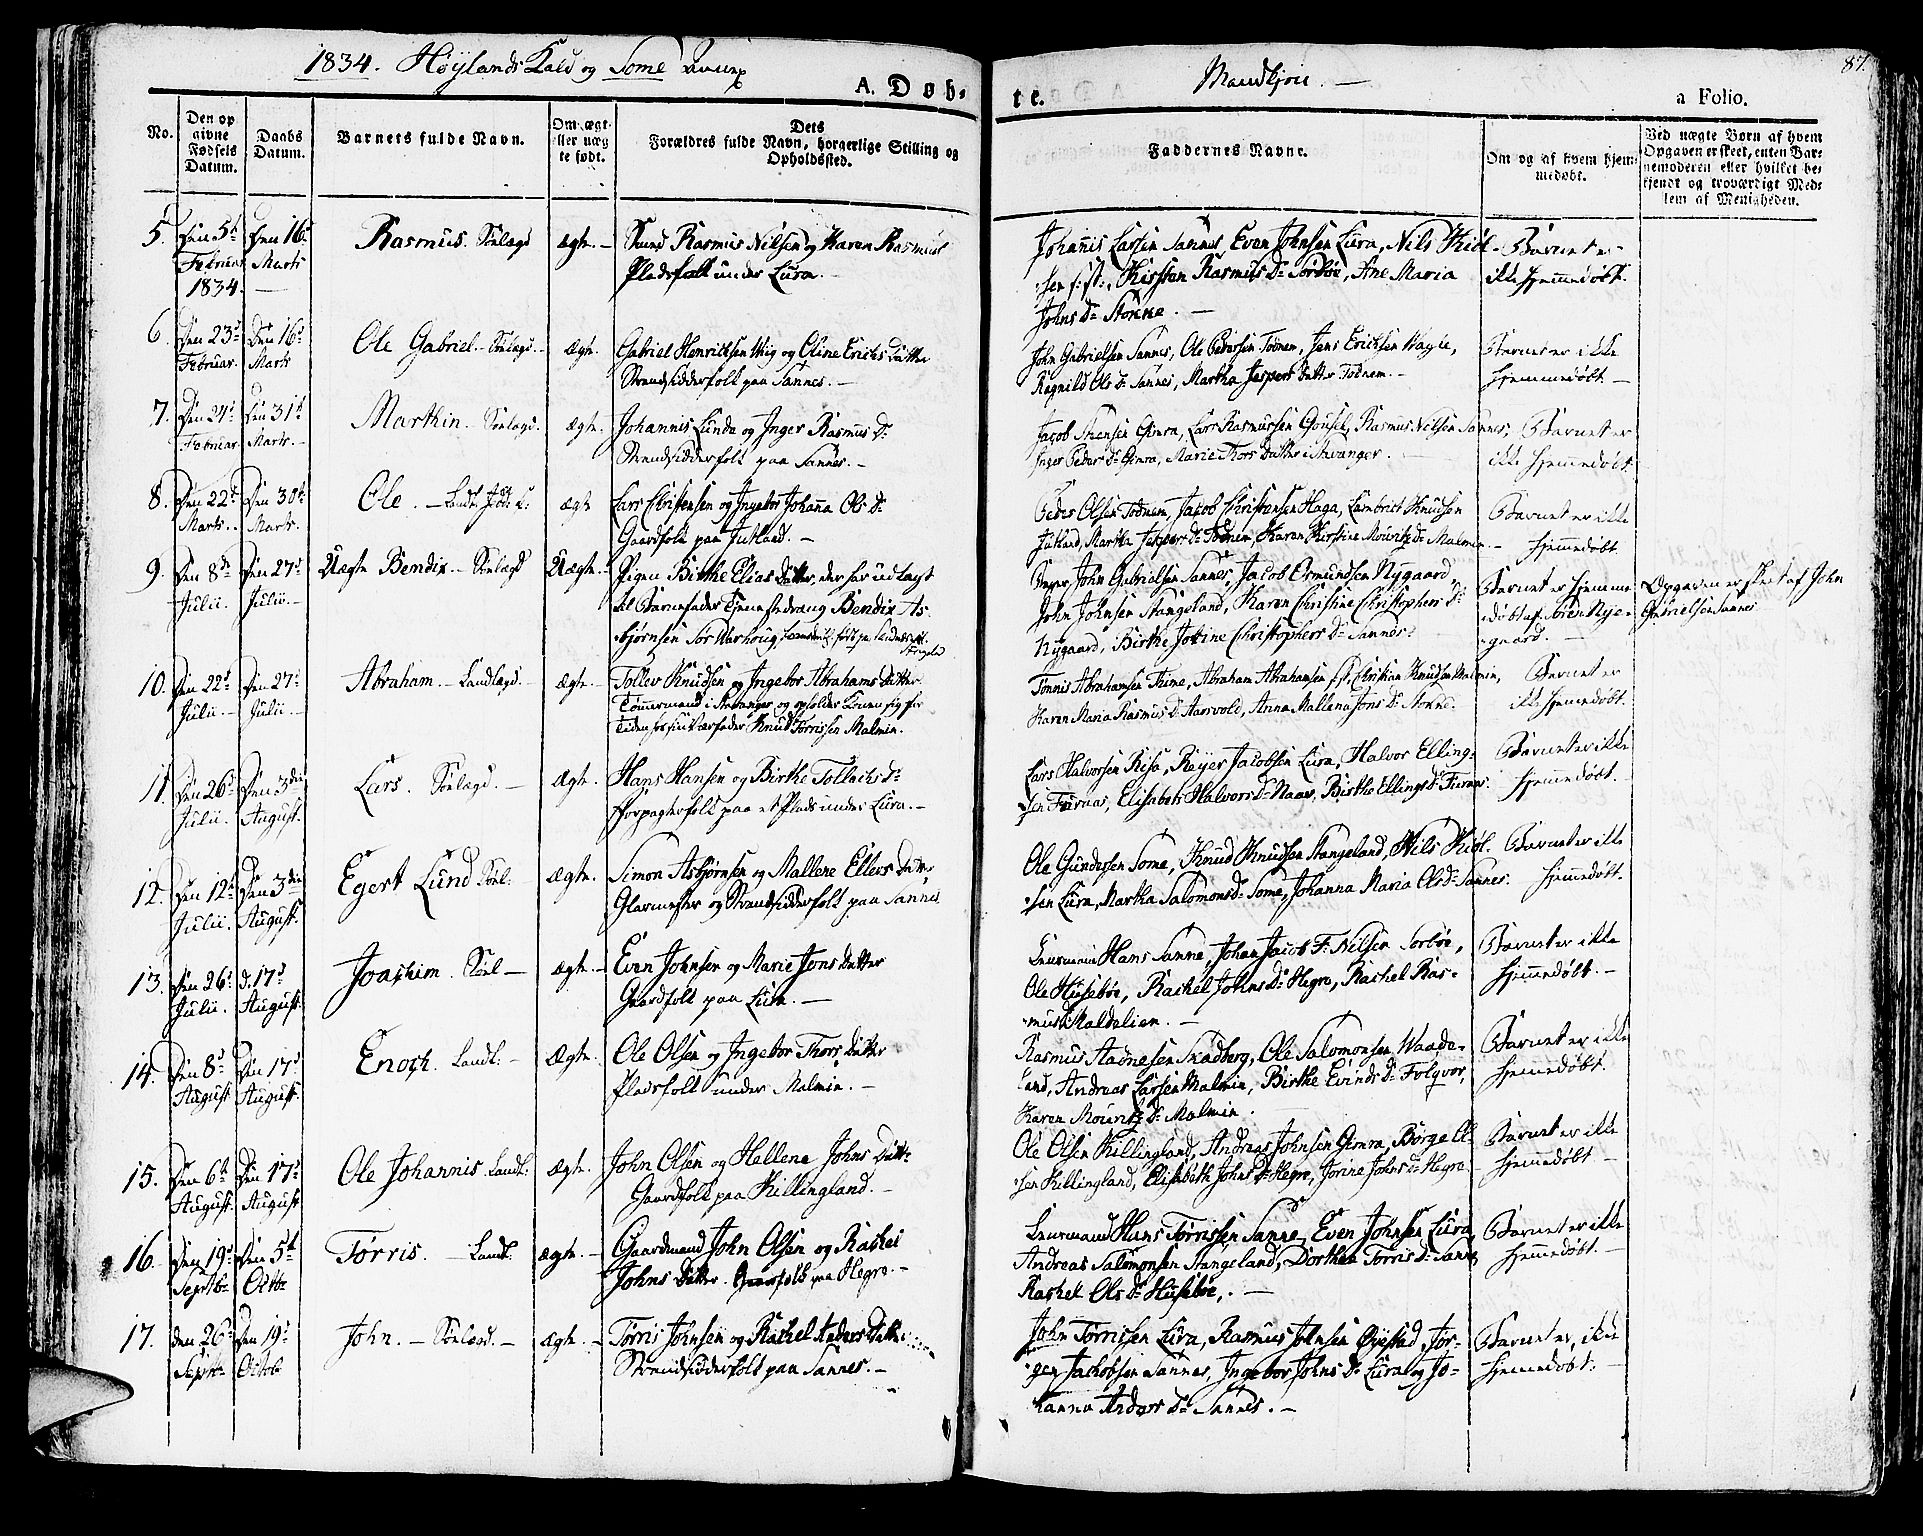 1834. Høylands Kald og Some
A. Døb-
te.
Mandkjøn. —
a Folio.
87.
No.
Den op
givne
Fødsels
Datum.
Daabs
Datum.
Barnets fulde Navn.
Om ægt-
eller uæg
te født.
Dets
Forældres fulde Navn, borgerlige Stilling og
Opholdssted.
Faddernes Navne.
Om og af hvem hjem-
medøbt.
Ved uægte Børn af hvem
Opgaven er skeet, enten Bar-
nemoderen eller hvilket be-
kjendt og troværdigt Med-
lem af Menigheden.
5. Den 5t Februar 1834. Den 16d Marts
Rasmus. Sönlagd
ægte. —
Rasmus Nilsen og Karen Rasmus
Pladsfolk under Lura. —
Johannis Larsen Sannes, Even Johnsen Lura, Nils Kiöl-
sen, Kirsten Rasmus Dr Sörböe, Ane Maria
Johns Dr Stonne. —
Barnet er
ikke Hjemmedøbt.
6. Den 23d Februar. Den 16d Marts
Ole Gabriel. — Sönlagd. —
Ægte.
Gabriel Henrichsen Wiig og Oline Erichs Datter
Strandsidderfolk paa Sannes. —
John Gabrielsen Sannes, Ole Pedersen Todnem, Jens Erichsen Wagle,
Ragnild Ols Dr Sannes, Martha Jespers Datter Todnem. —
Barnet er ikke
hjemmedøbt. —
7. Den 24d Februar. Den 31t Marts. —
Marthin. Sönlagd.
Ægte.
Johannis Lunde og Inger Rasmus Dr
Strandsidderfolk paa Sannes. —
Jacob Gimra, Lars Rasmussen Gousel, Rasmus Nilsen Sannes,
Inger Peders Dr Gimra, Marie Thors Datter i Stavanger.
Barnet er
ikke hjemmedøbt.
8. Den 22d Marts. Den 30te Marts.
Ole. —
ægte
Lars Christensen og Ingebor Johanna Ols Dr
Gaardfolk paa Jutland. —
Peder Olsen Todnem, Jacob Christensen Haga, Lambrict Knudsen
Jutland, Martha Jespers Dr Todnem, Karen Kirstine Mouritz Dr Malmin. —
Barnet er ikke
hjemmedøbt.
9. Den 8de Julii. Den 27d Julii. —
Uægte Bendix. — Sönlagd
Uægte. —
Pigen Birthe Elias Datter, der har udlagt
til Barnefader Tjenestedreng Bendix As-
bjørnsen Sör Warhoug,
John Gabrielsen Sannes, Jacob Ormundsen Nygaard,
John Johnsen Stangeland, Karen Christine Christophers Dr
Nygaard, Birthe Jokine Christophers Dr Sannes.
Barnet er hjemme-
døbt af Sören Nye-
gaard. —
Opgaven er skeet af John
Gabrielsen Sannes
10. Den 22d Julii. — Den 27de Julii. —
Abraham. — Landlagd.
ægte. —
Tollev Knudsen og Ingebor Abrahams Datter
Tømmermand i Stavanger og opholder Konen sig for
Tiden hos sin Værfader Knud Torrissen Malmin.
Tönnis Abrahamsen Time, Abraham Abrahamsen, Christian Knudsen Malmin,
Karen Maria Rasmus Dr Aarsvold, Anna Mallena Jons Dr Stonne.
Barnet er
ikke hjemmedøbt.
11. Den 26d Julii. Den 3die August.
Lars. Sönlagd. —
Ægte.
Hans Hansen og Birthe Tollachs Dr
Forpagterfolk paa et Plads under Lura. —
Lars Halvorsen Risa, Reyer Jacobsen Lura, Halvor Elling-
sen Furnas, Elisabeth Halvors Dr Naae, Birthe Ellings Dr Furnas.
Barnet er ikke
hjemmedøbt. —
12. Den 12te Julii. Den 3die August.
Egert Lund Sönl.
ægte.
Simon Asbjørnsen og Mallene Ellers Datter
Glarmester og Strandsidderfolk paa Sannes
Ole Gundersen Some, Knud Knudsen Stangeland, Nils Kiöl-
sen Lura, Martha Salomons Dr Some, Johanna Maria Ols Dr Sannes.
Barnet er ikke
hjemmedøbt.
13. Den 26d Julii. d. 17d August.
Joachim. Sönl —
ægte. —
Even Johnsen og Marie Jons Datter
Gaardfolk paa Lura. —
Lensmand Hans Sanne, Johan Jacob F. Nilsen Sorböe,
Ole Husebøe, Rachel Johns Dr Hegre, Rachel Ras-
mus Dr Maldelien. —
Barnet er ikke
hjemmedøbt. —
14. Den 8d August. Den 17d August.
Enoch. Landl. —
Ægte.
Ole Olsen og Ingebor Thors Datter
Pladsfolk under Malmin. —
Rasmus Aadnesen Skadberg, Ole Salomonsen Waada-
land, Andreas Larsen Malmin, Birthe Evinds Dr Folqvor,
Karen Mouritz Dr Malmin.
Barnet er ikke
hjemmedøbt.
15. Den 6te August. Den 17d August
Ole Johannis. Landl.
ægte.
John Olsen og Hellene Johns Datter
Gaardfolk paa Killingland. —
Ole Olsen Killingland, Andreas Johnsen Gimra, Börge Ol-
sen Killingland, Elisabeth Johns Dr Hegre, Jorine Johns Dr Hegre.
Barnet er ikke
hjemmedøbt —
16. Den 19d Septbr Den 5te Octbr
Torris. — Landl.
ægte. —
Gaardmand John Olsen og Rachel
Johns Datter. Gaardfolk paa Hegre. —
Lensmand Hans Torrissen Sanne, Even Johnsen Lura,
Andreas Salomonsen Stangeland, Dorthea Torris Dr Sanne,
Rachel Ols Dr Husebøe. —
Barnet er ikke
hjemmedøbt. —
17. den 26d Septbr Den 19d Octob
John. — Sönlagd. —
ægte. —
Torris Johnsen og Rachel Anders Datter
Strandsidderfolk paa Sannes. —
John Torrisen Lura, Rasmus Johnsen Qvistad, Jör-
gen Jackobsen Sannes, Ingebor Johns Dr Lura og Jo-
hanna Anders Dr Sannes. —
Barnet er, ikke
hjemmedøbt. —